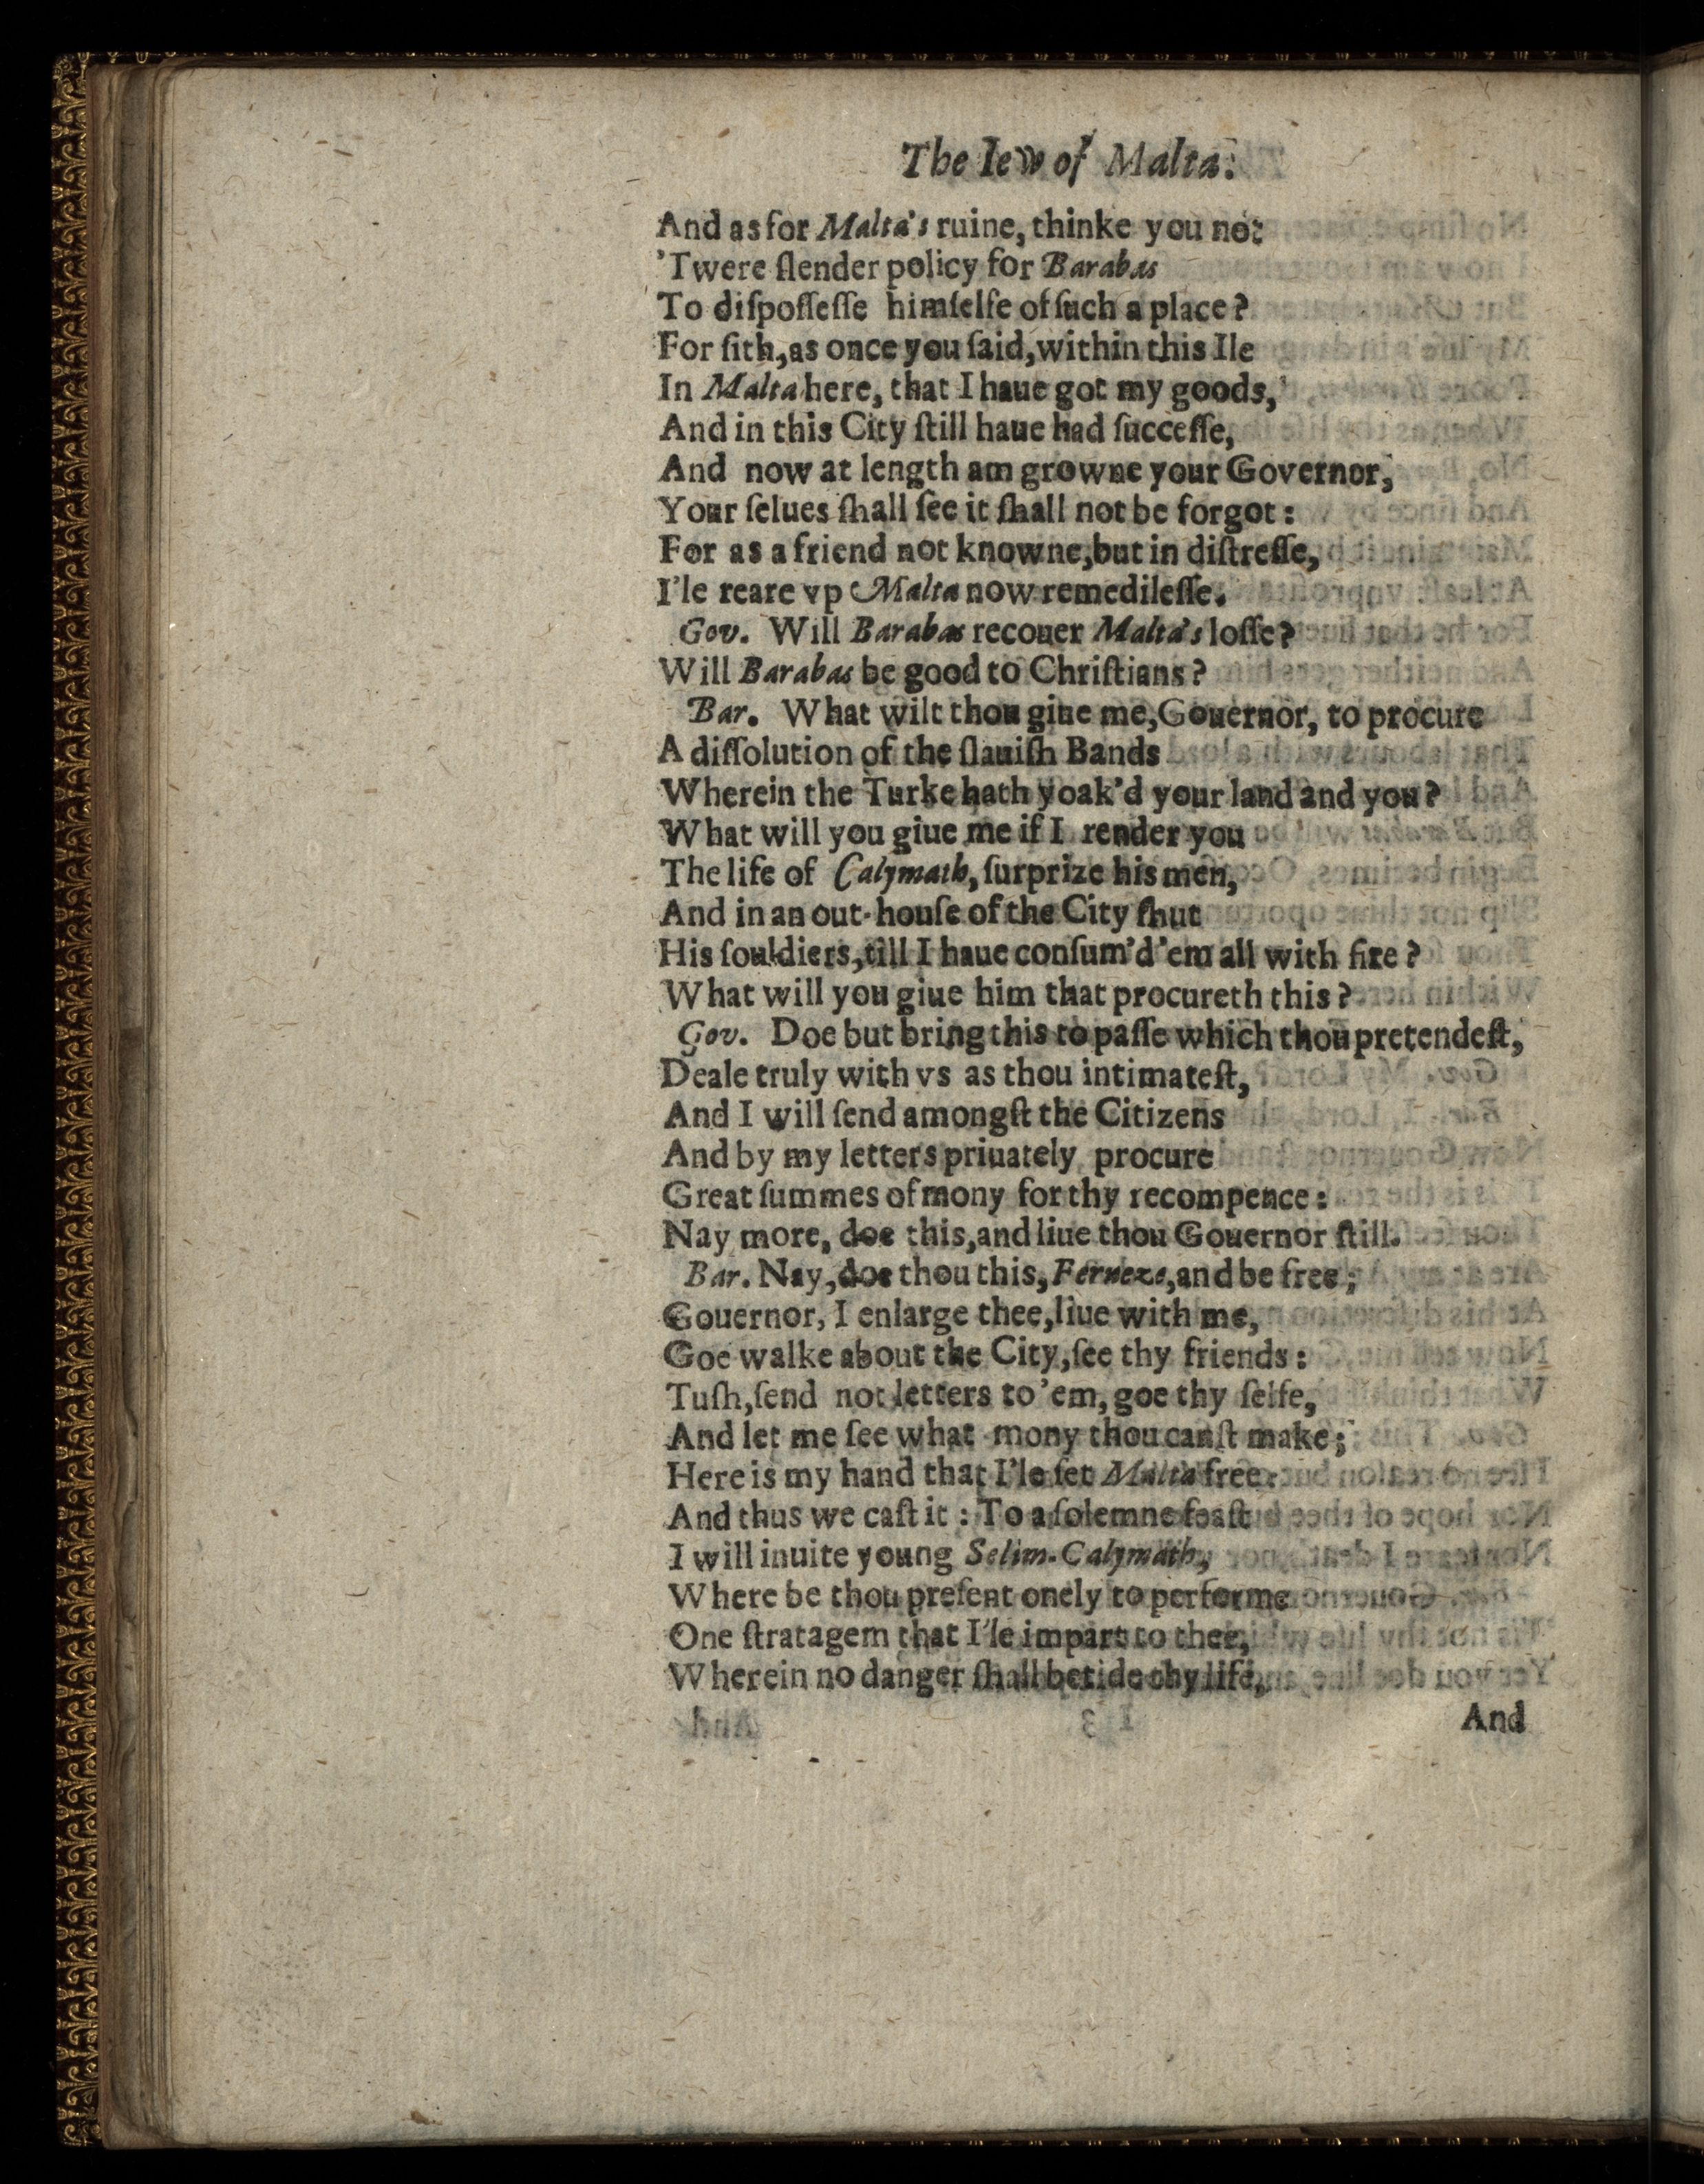 The Iew of Malta.
And as for Malta's ruine, thinke you not
'Twere ſlender policy for Barabas
To diſpoſſeſſe himſelfe of ſuch a place?
For ſith, as once you ſaid, within this Ile
In Malta here, that I haue got my goods,
And in this City ſtill haue had ſucceſſe,
And now at length am growne your Governor,
Your ſelues ſhall ſee it ſhall not be forgot:
For as a friend not knowne, but in diſtreſſe,
I'le reare vp Malta now remedileſſe.
Gov. Will Barabas recouer Malta's loſſe?
Will Barabas be good to Chriſtians?
Bar. What wilt thou giue me, Gouernor, to procure
A diſſolution of the ſlauiſh Bands
Wherein the Turke hath yoak'd your land and you?
What will you giue me if I render you
The life of Calymath, ſurprize his men,
And in an out-houſe of the City ſhut
His ſouldiers, till I haue conſum'd 'em all with fire?
What will you giue him that procureth this?
Gov. Doe but bring this to paſſe which thou pretendeſt,
Deale truly with vs as thou intimateſt,
And I will ſend amongſt the Citizens
And by my letters priuately procure
Great ſummes of mony for thy recompence:
Nay more, doe this, and liue thou Gouernor ſtill.
Bar. Nay, doe thou this, Ferneze, and be free;
Gouernor, I enlarge thee, liue with me,
Goe walke about the City, ſee thy friends:
Tuſh, ſend not letters to 'em, goe thy ſelfe,
And let me ſee what mony thou canſt make;
Here is my hand that I'le ſet Malta free:
And thus we caſt it: To a ſolemne feaſt
I will inuite young Selim-Calymath,
Where be thou preſent onely to performe
One ſtratagem that I'le impart to thee,
Wherein no danger ſhall betide thy life,
And